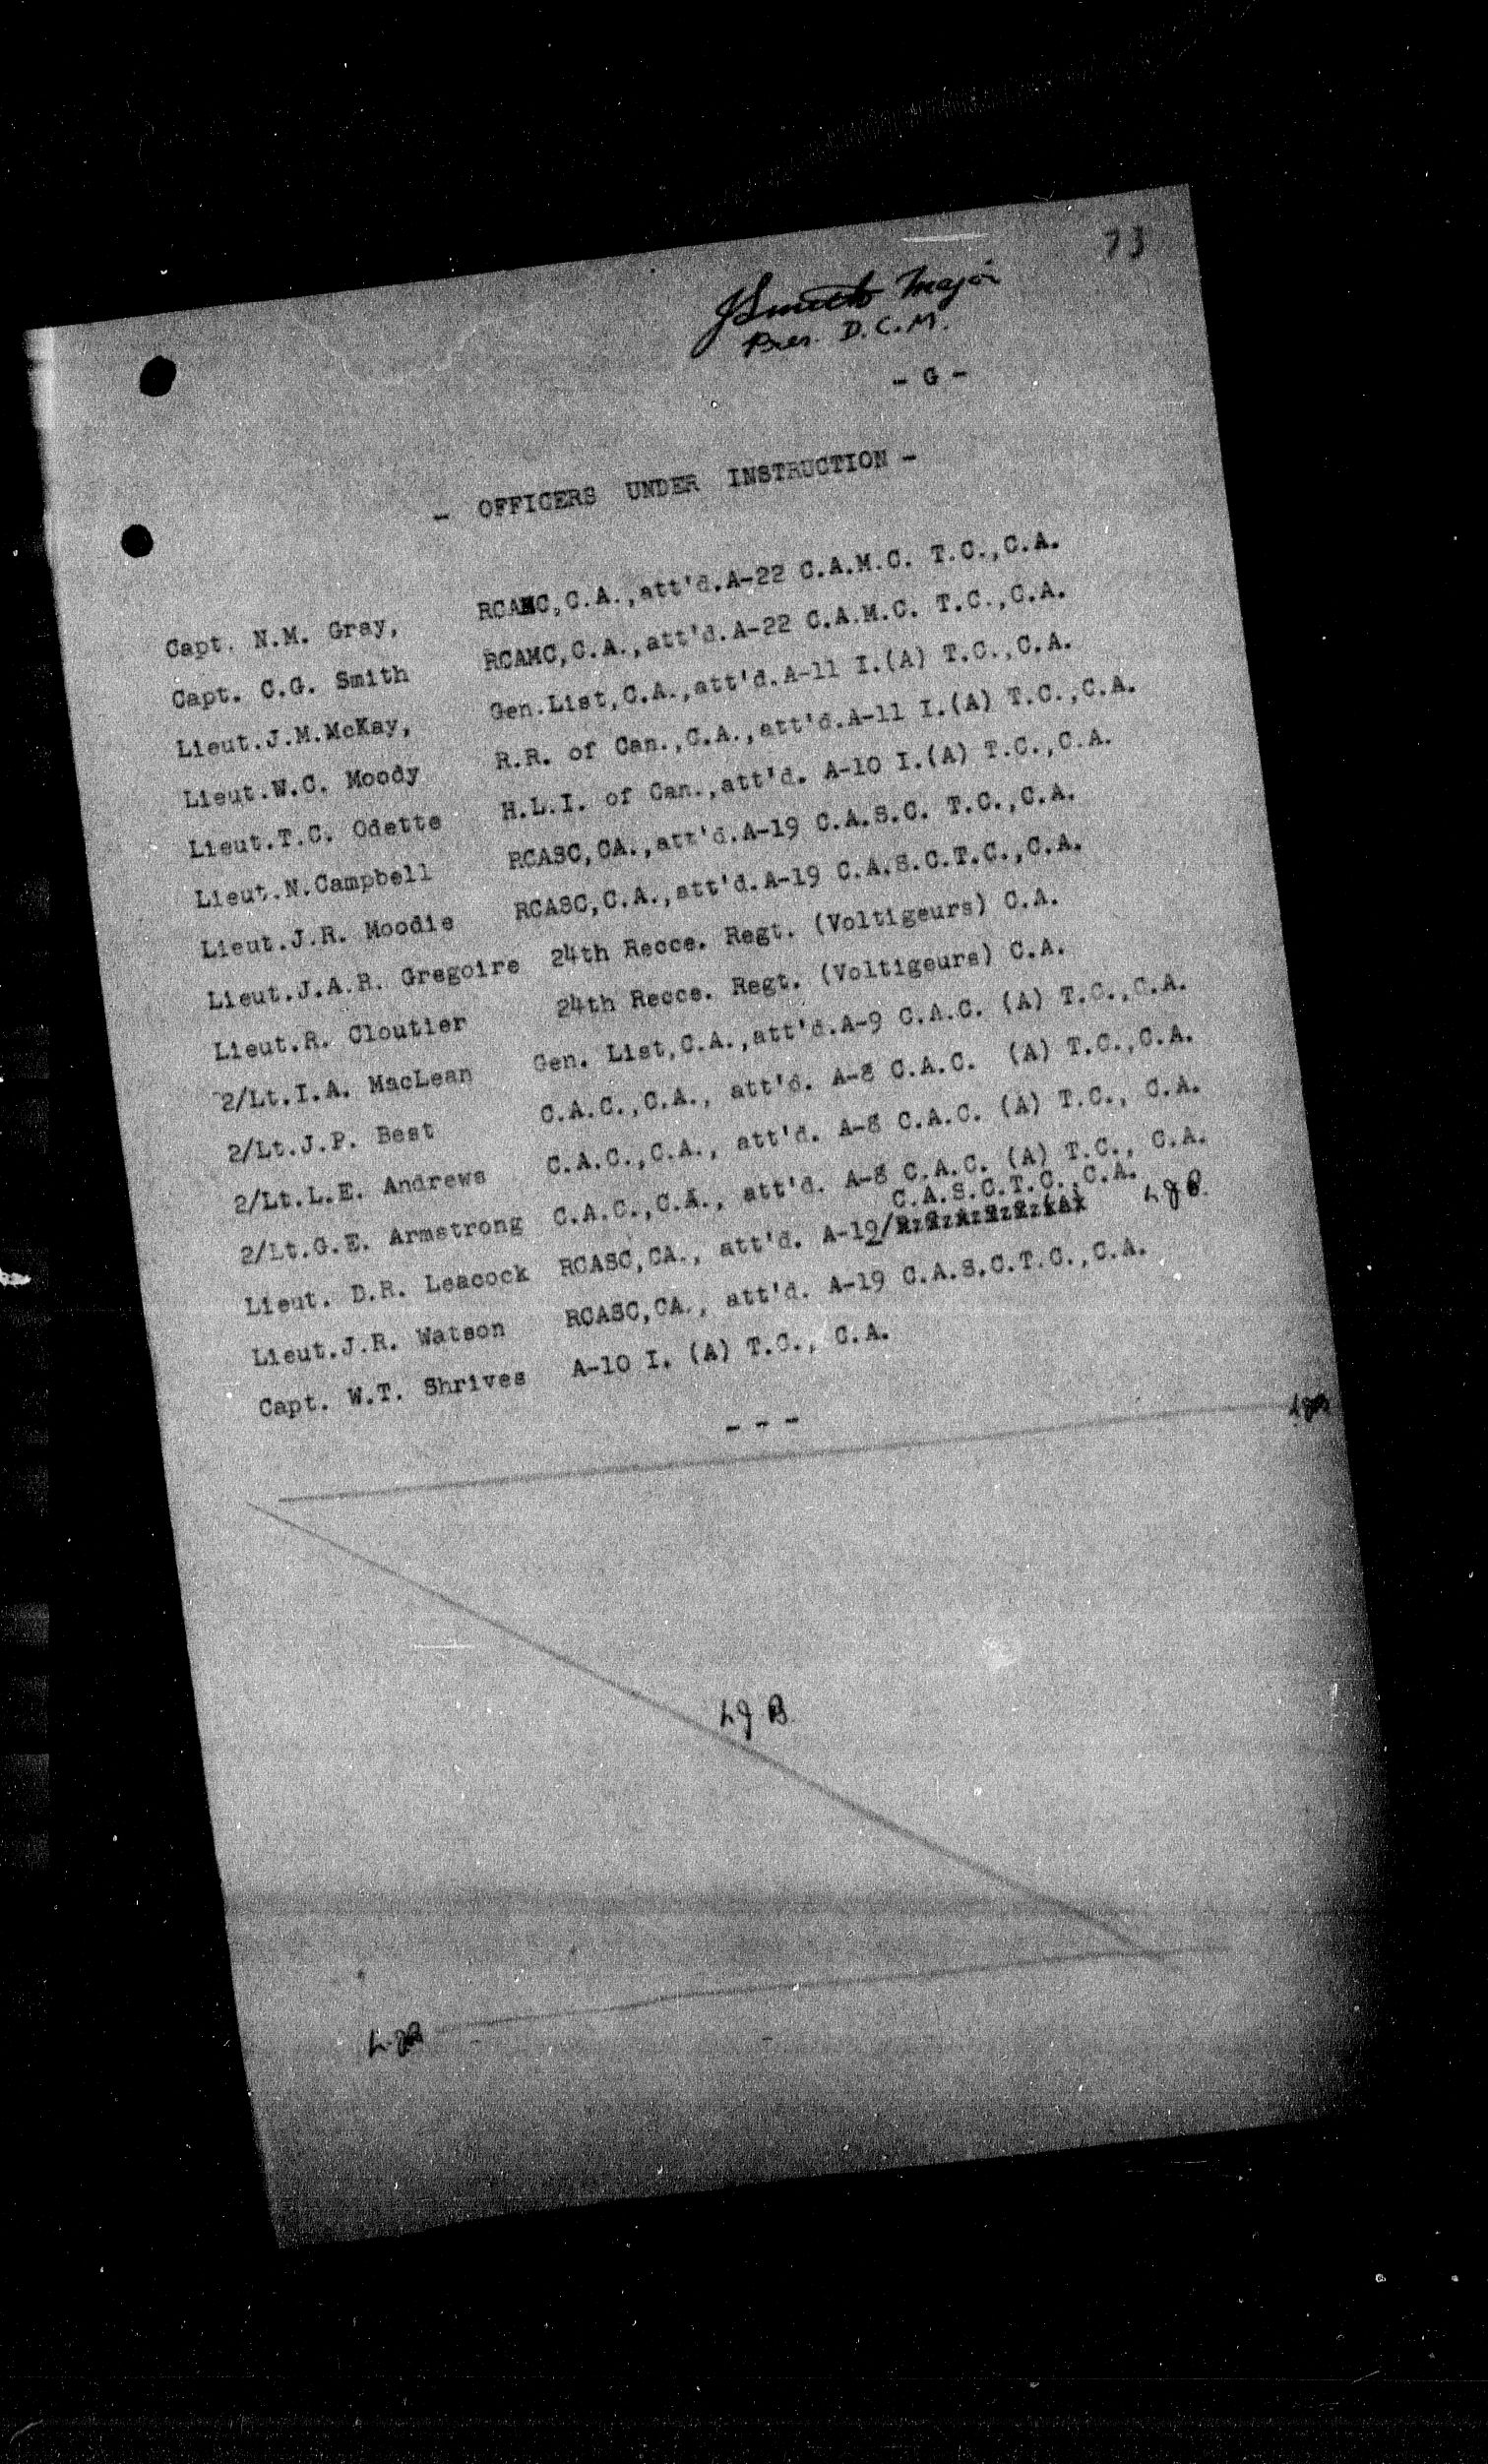 73
JSmith Major
Pres. D.C.M.
- G -
- OFFICERS UNDER INSTRUCTION -
Capt. N.M. Gray, RCAMC,C.A.,att'd.A-22 C.A.M.C. T.C.,C.A.
Capt. C.G. Smith RCAMC,C.A.,att'd.A-22 C.A.M.C. T.C.,C.A.
Lieut.J.M.McKay, Gen.List,C.A.,att'd.A-11 I.(A) T.C.,C.A.
Lieut.W.C. Moody R.R. of Can.,C.A.,att'd.A-11 I.(A) T.C.,C.A.
Lieut.T.C. Odette H.L.I. of Can.,att'd. A-10 I.(A) T.C.,C.A.
Lieut.N.Campbell RCASC,CA.,att'd.A-19 C.A.S.C. T.C.,C.A.
Lieut.J.R. Moodie RCASC,C.A.,att'd.A-19 C.A.S.C.T.C.,C.A.
Lieut.J.A.R. Gregoire 24th Recce. Regt. (Voltigeurs) C.A.
Lieut.R. Cloutier 24th Recce. Regt. (Voltigeurs) C.A.
2/Lt.I.A. MacLean Gen. List,C.A.,att'd.A-9 C.A.C. (A) T.C.,C.A.
2/Lt.J.P. Best C.A.C.,C.A., att'd. A-8 C.A.C. (A) T.C.,C.A.
2/Lt.L.E. Andrews C.A.C.,C.A., att'd. A-8 C.A.C. (A) T.C., C.A.
2/Lt.G.E. Armstrong C.A.C.,C.A., att'd. A-8 C.A.C. (A) T.C., C.A.
C.A.S.C.T.C.,C.A.
Lieut. D.R. Leacock RCASC,CA., att'd. A-19/
Lieut.J.R. Watson RCASC,CA., att'd. A-19 C.A.S.C.T.C.,C.A.
Capt. W.T. Shrives A-10 I. (A) T.C., C.A.
- - -